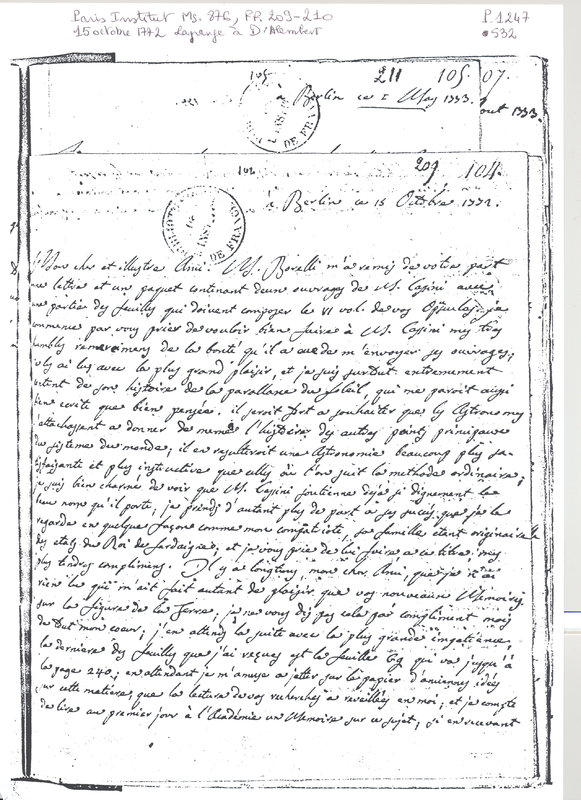 Paris Institut Ms. 876, pp. 209-210
15 octobre 1772 Lagrange à D'Alembert
P. 1247
532
105
211 105. 07.
à Berlin ce 1 May 1773.
out 1773.
209 104.
102
à Berlin ce 15 Octobre 1772.
DE FRAN
INST
DE FRAN
Mon cher et illustre Ami. M. Borelli m'a remis de votre part
une lettre et un paquet contenant deux ouvrages de M. Casini avec
une partie des feuilles qui doivent composer le VI vol. de vos Opuscules. je
commence par vous prier de vouloir bien faire à M. Casini mes très
humbles remercimens de la bonté qu'il a eue de m'envoyer ses ouvrages;
je les ai lus avec le plus grand plaisir, et je suis surtout extremement
content de son histoire de la parallaxe du Soleil, qui me paroit aussi
bien ecrite que bien pensée. il seroit fort à souhaiter que les Astronomes
s'attachassent a donner de meme l'histoire des autres points principaux
du sisteme du monde; il en resulteroit une Astronomie beaucoup plus sa-
tisfaisante et plus instructive que celles où l'on suit la methode ordinaire;
je suis bien charmé de voir que M. Casini soutienne déjà si dignement le
beau nom qu'il porte; je prends d'autant plus de part a ses succes que je le
regarde en quelque façon comme mon compatriote, sa famille etant originaire
des etats du Roi de Sardaigne; et je vous prie de lui faire a ce titre mes
plus tendres complimens. Il y a longtems, mon cher Ami, que je n'ai
rien lu qui m'ait fait autant de plaisir que vos nouveaux Memoires
sur la Figure de la Terre, je ne vous dis pas cela par compliment mais
de tout mon coeur; j'en attends la suite avec la plus grande impatience
la derniere des feuilles que j'ai reçues est la feuille Gg qui va jusqu'à
la page 240; en attendant je m'amuse a jetter sur le papier d'anciennes idées
sur cette matiere, que la lecture de vos recherches a reveillées en moi; et je compte
de lire au premier jour à l'Académie un Memoire sur ce sujet; si en recevant